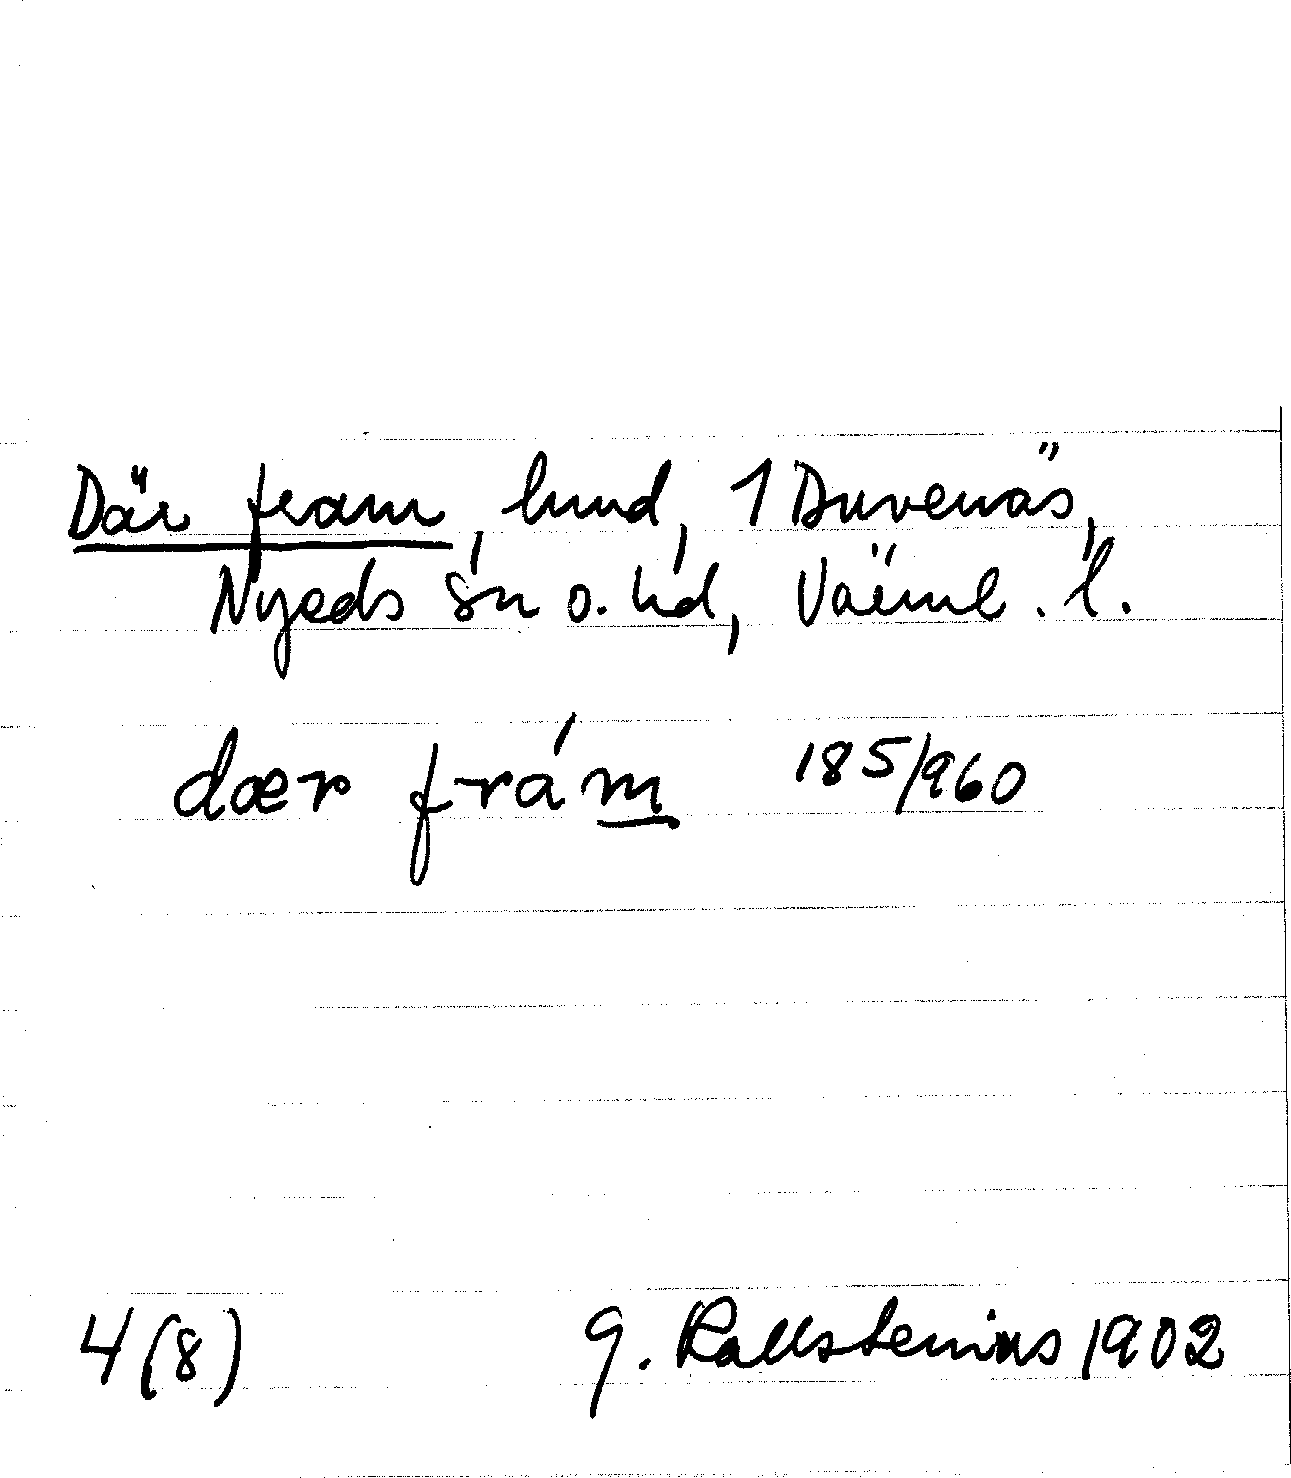 Där fram, lund, 1 Duvenäs,
Nyeds sn o. hd, Värml. l.
dær frám 185/960
4(8) G. Kallstenius 1902